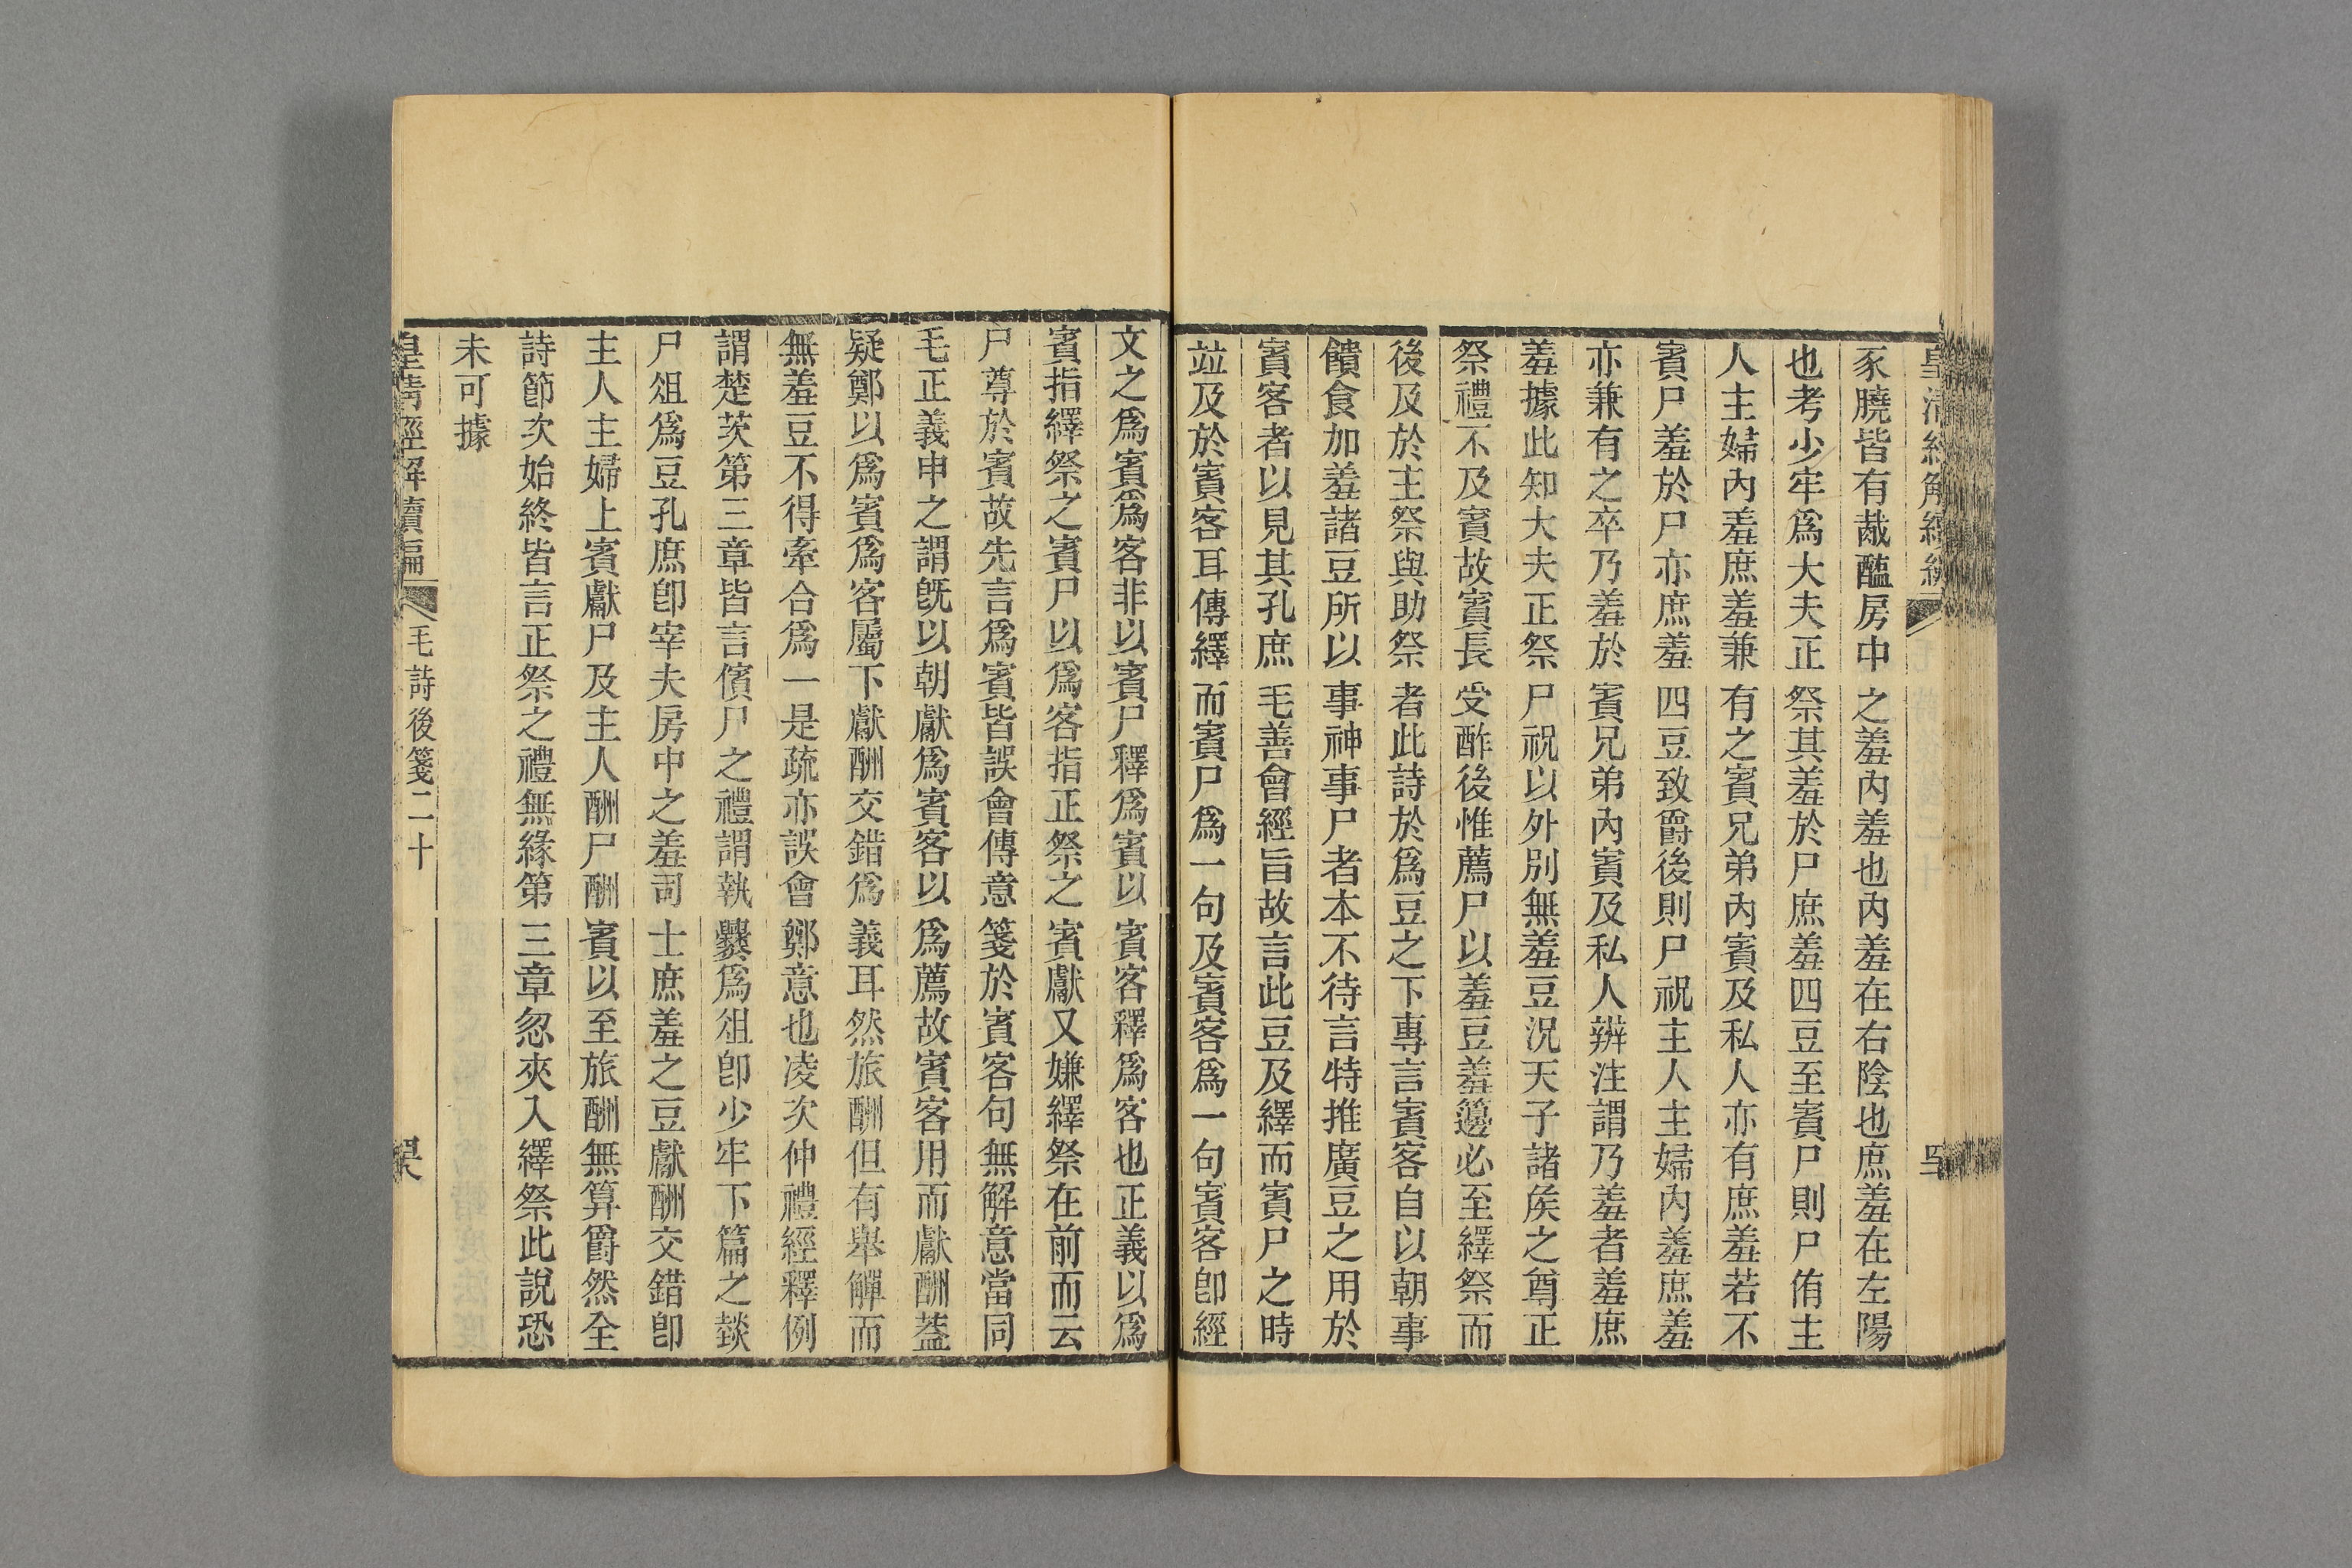 豕膮皆有胾醢房中之羞內羞也內羞在右陰也庶羞在左陽
也考少牢爲大夫正祭其羞於尸庶羞四豆至賓尸則尸侑主
人主婦內羞庶羞兼有之賓兄弟內賓及私人亦有庶羞若不
賓尸羞於尸亦庶羞四豆致爵後則尸祝主人主婦內羞庶羞
亦兼有之卒乃羞於賓兄弟內賓及私人辨注謂乃羞者羞庶
羞據此知大夫正祭尸祝以外別無羞豆況天子諸矦之尊正
祭禮不及賓故賓長受酢後惟薦尸以羞豆羞籩必至繹祭而
後及於主祭與助祭者此詩於爲豆之下專言賓客自以朝事
饋食加羞諸豆所以事神事尸者本不待言特推廣豆之用於
賓客者以見其孔庶毛善會經旨故言此豆及繹而賓尸之時
竝及於賓客耳傳繹而賓尸爲一句及賓客爲一句賓客卽經
文之爲賓爲客非以賓尸釋爲賓以賓客釋爲客也正義以爲
賓指繹祭之賓尸以爲客指正祭之賓獻又嫌繹祭在前而云
尸尊於賓故先言爲賓皆誤會傳意箋於賓客句無解意當同
毛正義申之謂旣以朝獻爲賓客以爲薦故賓客用而獻酬蓋
疑鄭以爲賓爲客屬下獻酬交錯爲義耳然旅酬但有舉觶而
無羞豆不得牽合爲一是疏亦誤會鄭意也凌次仲禮經釋例
謂楚茨第三章皆言儐尸之禮謂執爨爲俎卽少牢下篇之燅
尸俎爲豆孔庶卽宰夫房中之羞司士庶羞之豆獻酬交錯卽
主人主婦上賓獻尸及主人酬尸酬賓以至旅酬無算爵然全
詩節次始終皆言正祭之禮無緣第三章忽夾入繹祭此說恐
未可據
皇淸經解續編
毛詩後箋二十